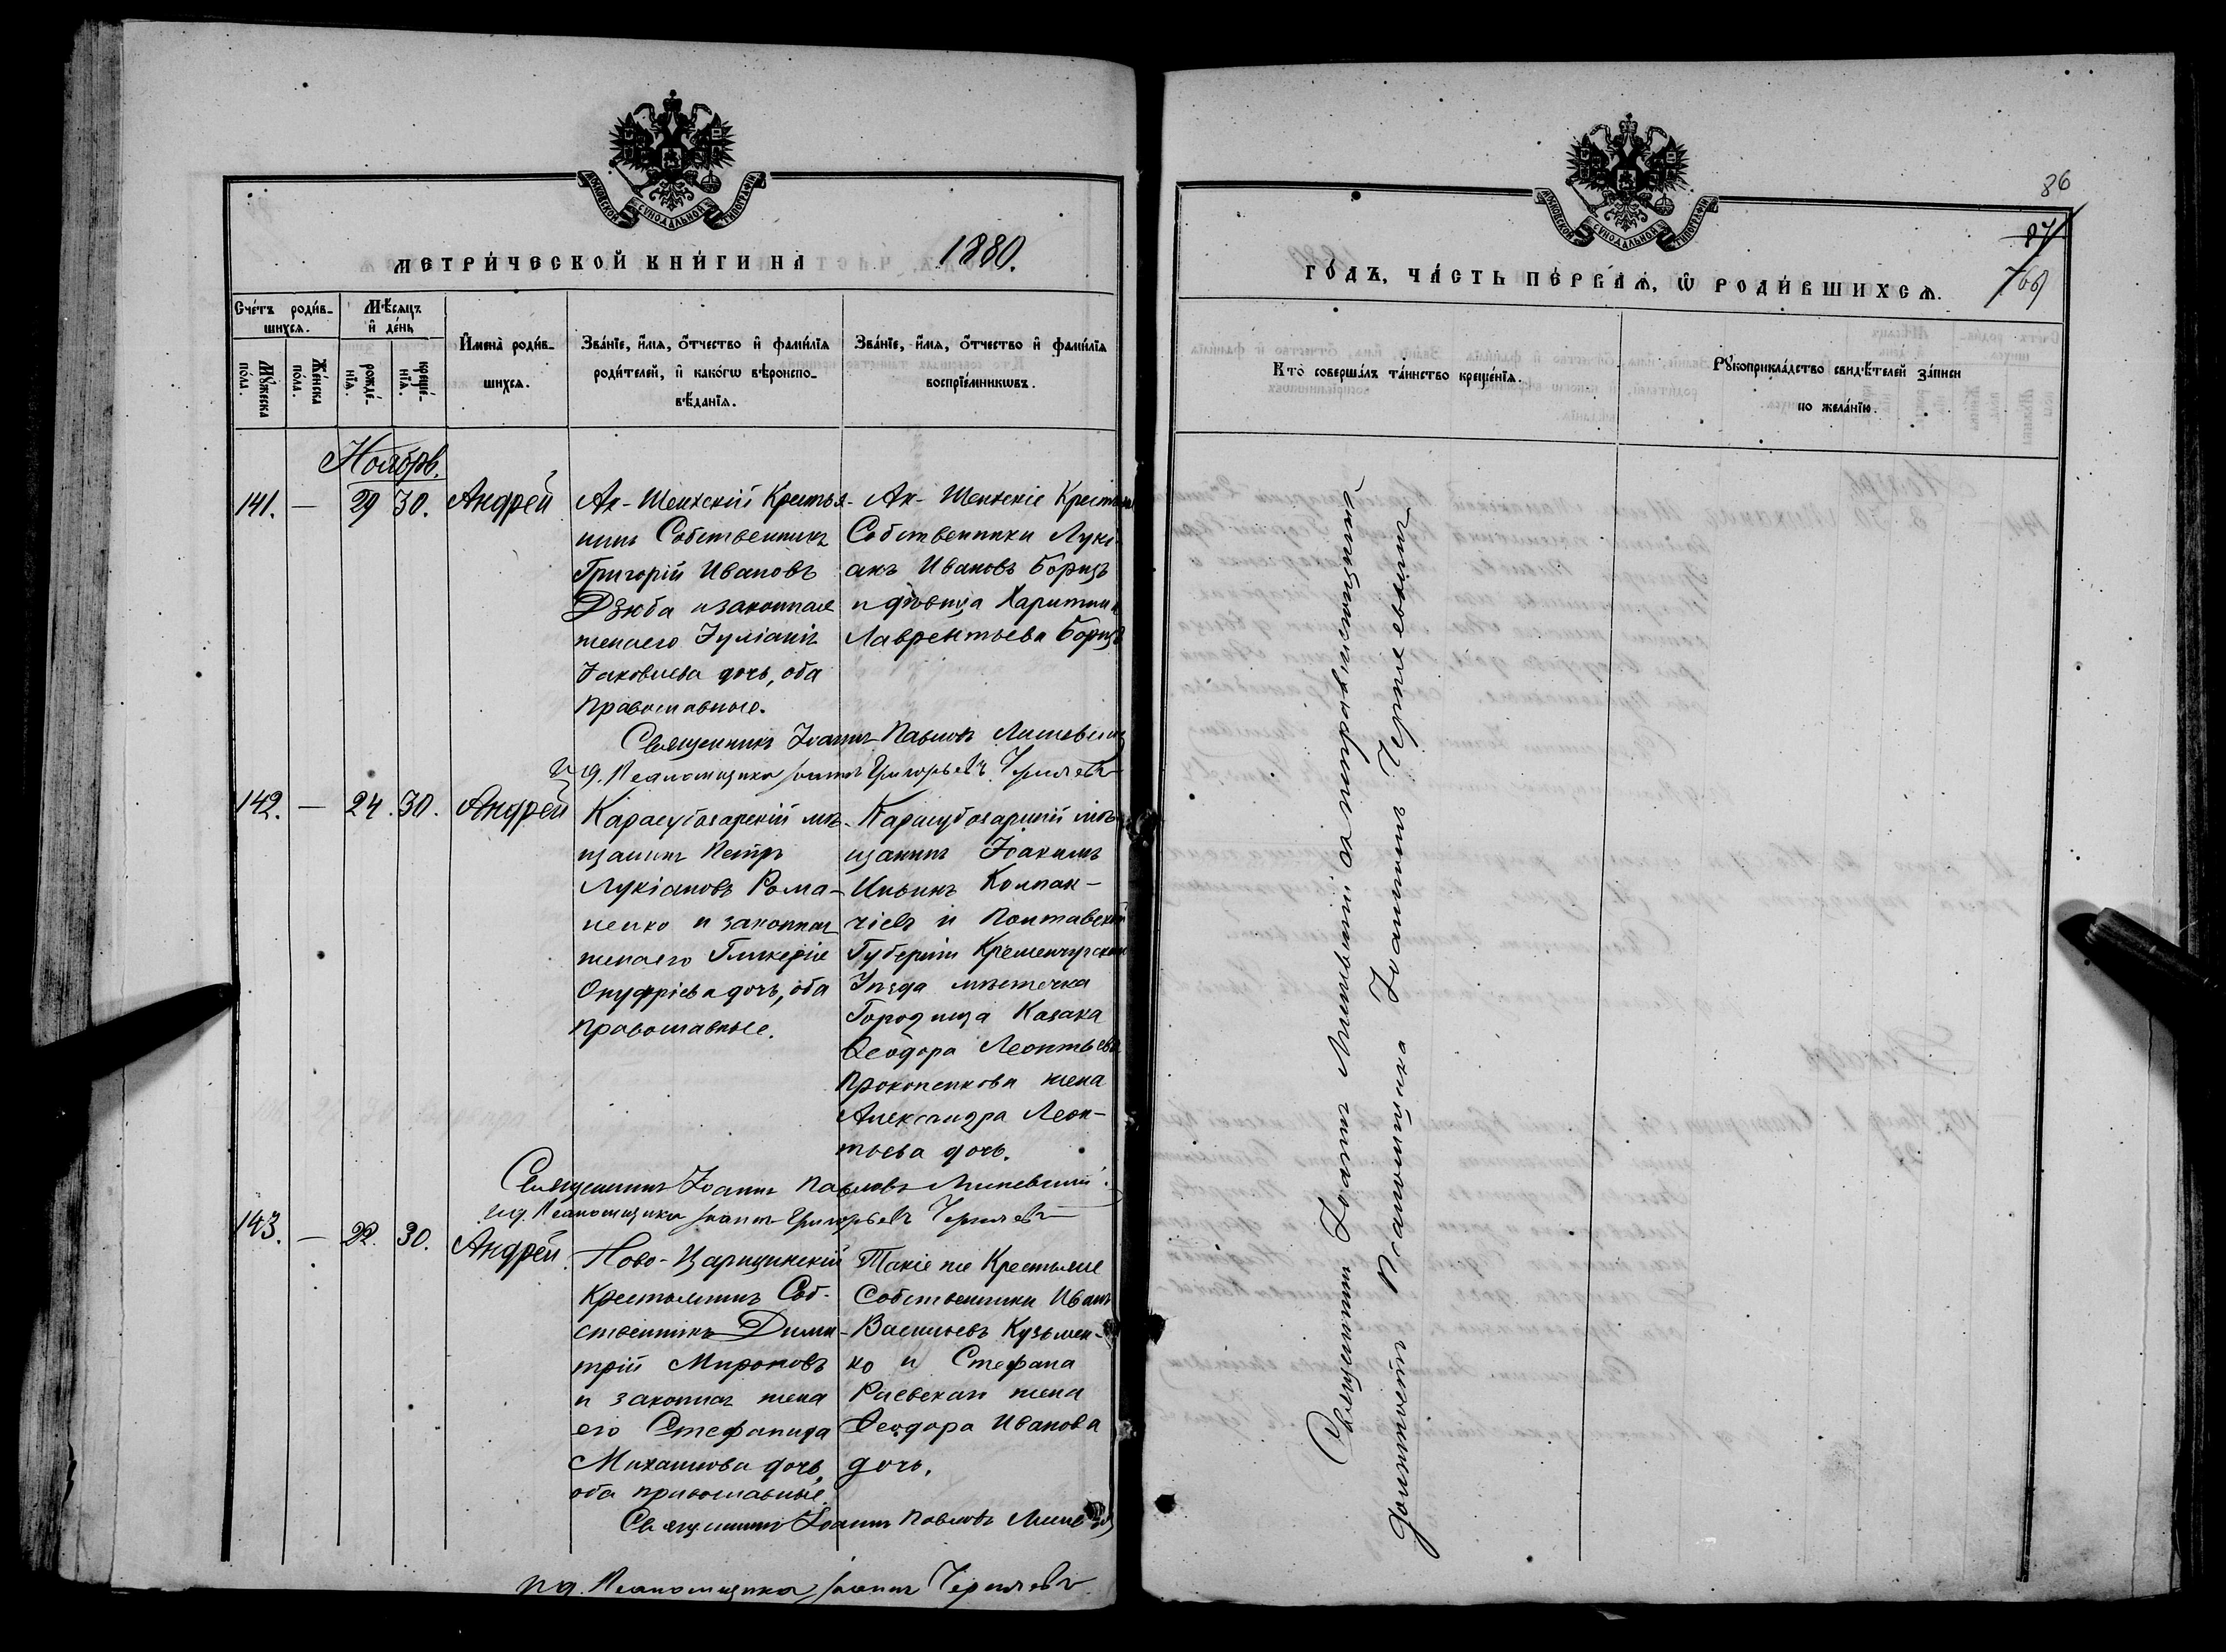 МОСКОВСКОЙ СѴНОДАЛЬНОЙ ТИПОГРАФІИ
МЕТРИ́ЧЕСКОЙ КНИ́ГИ НА 1880.
Сче́тъ роди́в-
шихся.
Мѣ́сяцъ
и҆ де́нь
Мꙋ́жеска
по́ла.
Же́нска
по́ла.
рожде́-
нїѧ.
креще́-
нїѧ.
И҆мена̀ роди́в-
шихсѧ.
Зва́нїе, и҆́мѧ, ѻ҆́тчество и҆ фами́лїѧ
роди́телей, и҆ како́гѡ вѣроиспо-
вѣ́данїѧ.
Зва́нїе, и҆́мѧ, ѻ҆́тчество и҆ фами́лїѧ
воспрїе́мникѡвъ.
Ноябрь.
141. — 29 30. Андрей
Ак-Шеихскій Крестья-
нинъ Собственникъ
Григорій Ивановъ
Дзюба и законная
жена его Іуліанія
Іаковлева дочь, оба
православные.
Ак-Шеихскіе Крестьяне
Собственники Луки-
анъ Ивановъ Борицъ
и девица Харитина
Лаврентьева Борицъ
Священникъ Іоаннъ Павловъ Линевскій
И. д. Псаломщика Іоаннъ Григорьевъ Черняевъ
142. — 24. 30. Андрей
Карасубазарскій мѣ-
щанинъ Петръ
Лукіановъ Рома-
ненко и законная
жена его Гликерія
Онуфріева дочь, оба
православные.
Карасубазарскій мѣ-
щанинъ Іоакимъ
Ильинъ Колпак-
чіевъ и Полтавской
Губерніи Кременчугскаго
Уѣзда мѣстечка
Городища Казака
Ѳеодора Леонтьева
Прокопенкова жена
Александра Леон-
тьева дочь.
Священникъ Іоаннъ Павловъ Линевскій.
и. д. Псаломщика Іоаннъ Григорьевъ Черняевъ
143. — 22. 30. Андрей.
Ново-Царицинскій
Крестьянинъ Соб-
ственникъ Дими-
трій Мироновъ
и законная жена
его Стефанида
Михаилова дочь,
оба православные.
Такіе же Крестьяне
Собственники Иванъ
Васильевъ Кузьмен-
ко и Стефана
Раевскаго жена
Ѳеодора Иванова
дочь.
Священникъ Іоаннъ Павловъ Линевскій
и д. Псаломщика Іоаннъ Черняевъ
МОСКОВСКОЙ СѴНОДАЛЬНОЙ ТИПОГРАФІИ
86
87
769
ГО́ДЪ, ЧА́СТЬ ПЕ́РВАѦ, Ѡ҆ РОДИ́ВШИХСѦ.
Кто̀ соверша́лъ та́инство креще́нїѧ.
Рꙋкоприкла́дство свидѣ́телей за́писи
по жела́нїю.
Священникъ Іоаннъ Линевскій съ исправляющимъ
должность Псаломщика Іоанномъ Черняевымъ